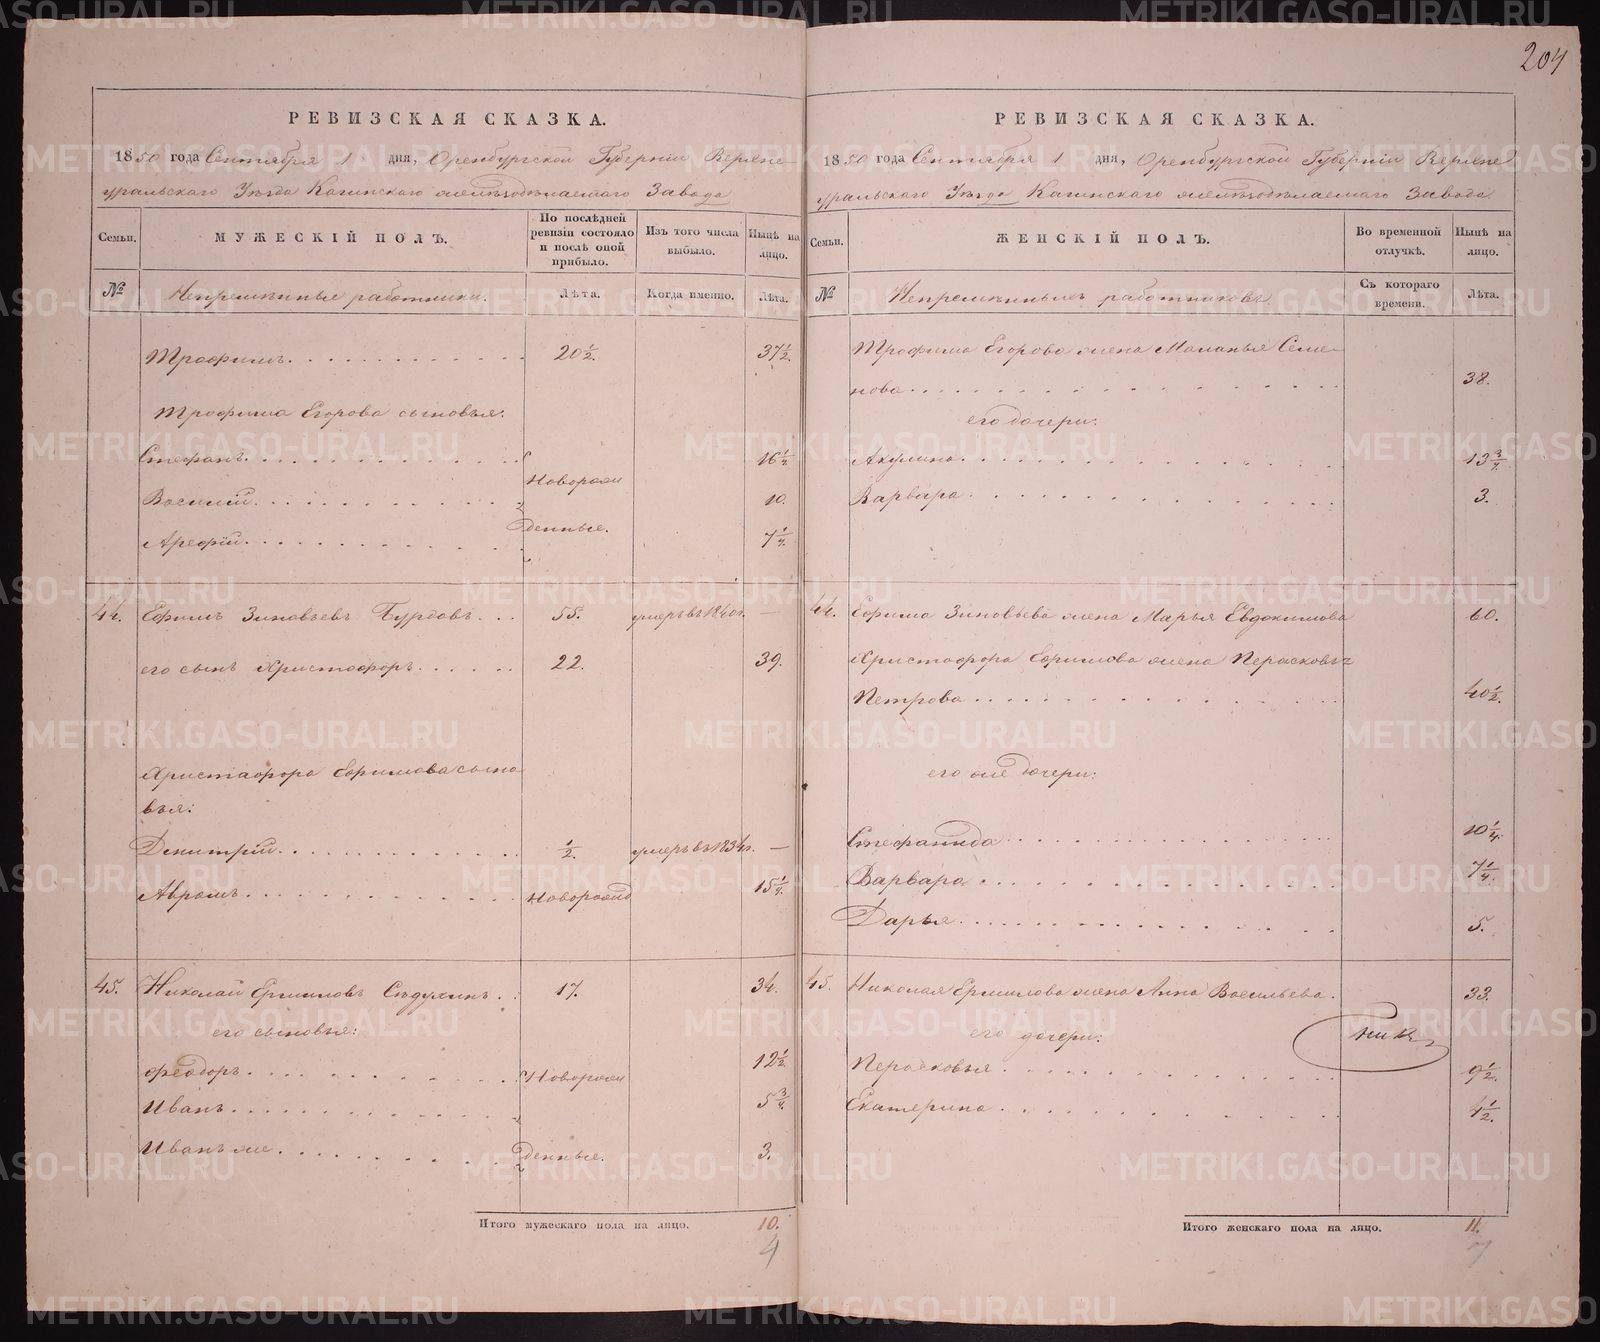 204
РЕВИЗСКАЯ СКАЗКА.
1850 года Сентября 1 дня, Оренбургской Губерніи Верхне-
уральскаго Уѣзда Кагинскаго желѣзодѣлаемаго Завода
Семьи.
МУЖЕСКІЙ ПОЛЪ.
По послѣдней ревизіи состояло и послѣ оной прибыло.
Изъ того числа выбыло.
Нынѣ на лицо.
№
Непремѣнные работники.
Лѣта.
Когда именно.
Лѣта.
Трофимъ. 20½. 37½.
Трофима Егорова сыновья:
Стефанъ. 16½
Новорож
Василій. 10.
денные.
Арефій. 7¼.
44. Ефимъ Зиновьевъ Бурдовъ. 55. умеръ въ 1840г. —
его сынъ Христофоръ. 22. 39.
Христофора Ефимова сыно
вья:
Димитрій. ½. умеръ въ 1834г. —
Аврамъ. Новорожд 15¼.
45. Николай Ермиловъ Сѣдухинъ. 17. 34.
его сыновья:
Феодоръ. Новорож 12½.
Иванъ. 5¾.
Иванъ же. денные. 3.
Итого мужескаго пола на лицо. 10.
4
РЕВИЗСКАЯ СКАЗКА.
1850 года Сентября 1 дня, Оренбургской Губерніи Верхне
уральскаго Уѣзда Кагинскаго желѣзодѣлаемаго Завода
Семьи.
ЖЕНСКІЙ ПОЛЪ.
Во временной отлучкѣ.
Нынѣ на лицо.
№
Непремѣнныхъ работниковъ
Съ котораго времени.
Лѣта.
Трофима Егорова жена Маланья Семе-
нова. 38.
его дочери:
Акулина. 13¾.
Варвара. 3.
44. Ефима Зиновьева жена Марья Евдокимова 60.
Христофора Ефимова жена Перасковья
Петрова. 40½.
его же дочери:
Стефанида. 10¼.
Варвара. 7¼.
Дарья. 5.
45. Николая Ермилова жена Анна Васильева. 33.
его дочери:
Перасковья. 9½.
Екатерина. 1½.
Итого женскаго пола на лицо. 11.
7
METRIKI.GASO-URAL.RU